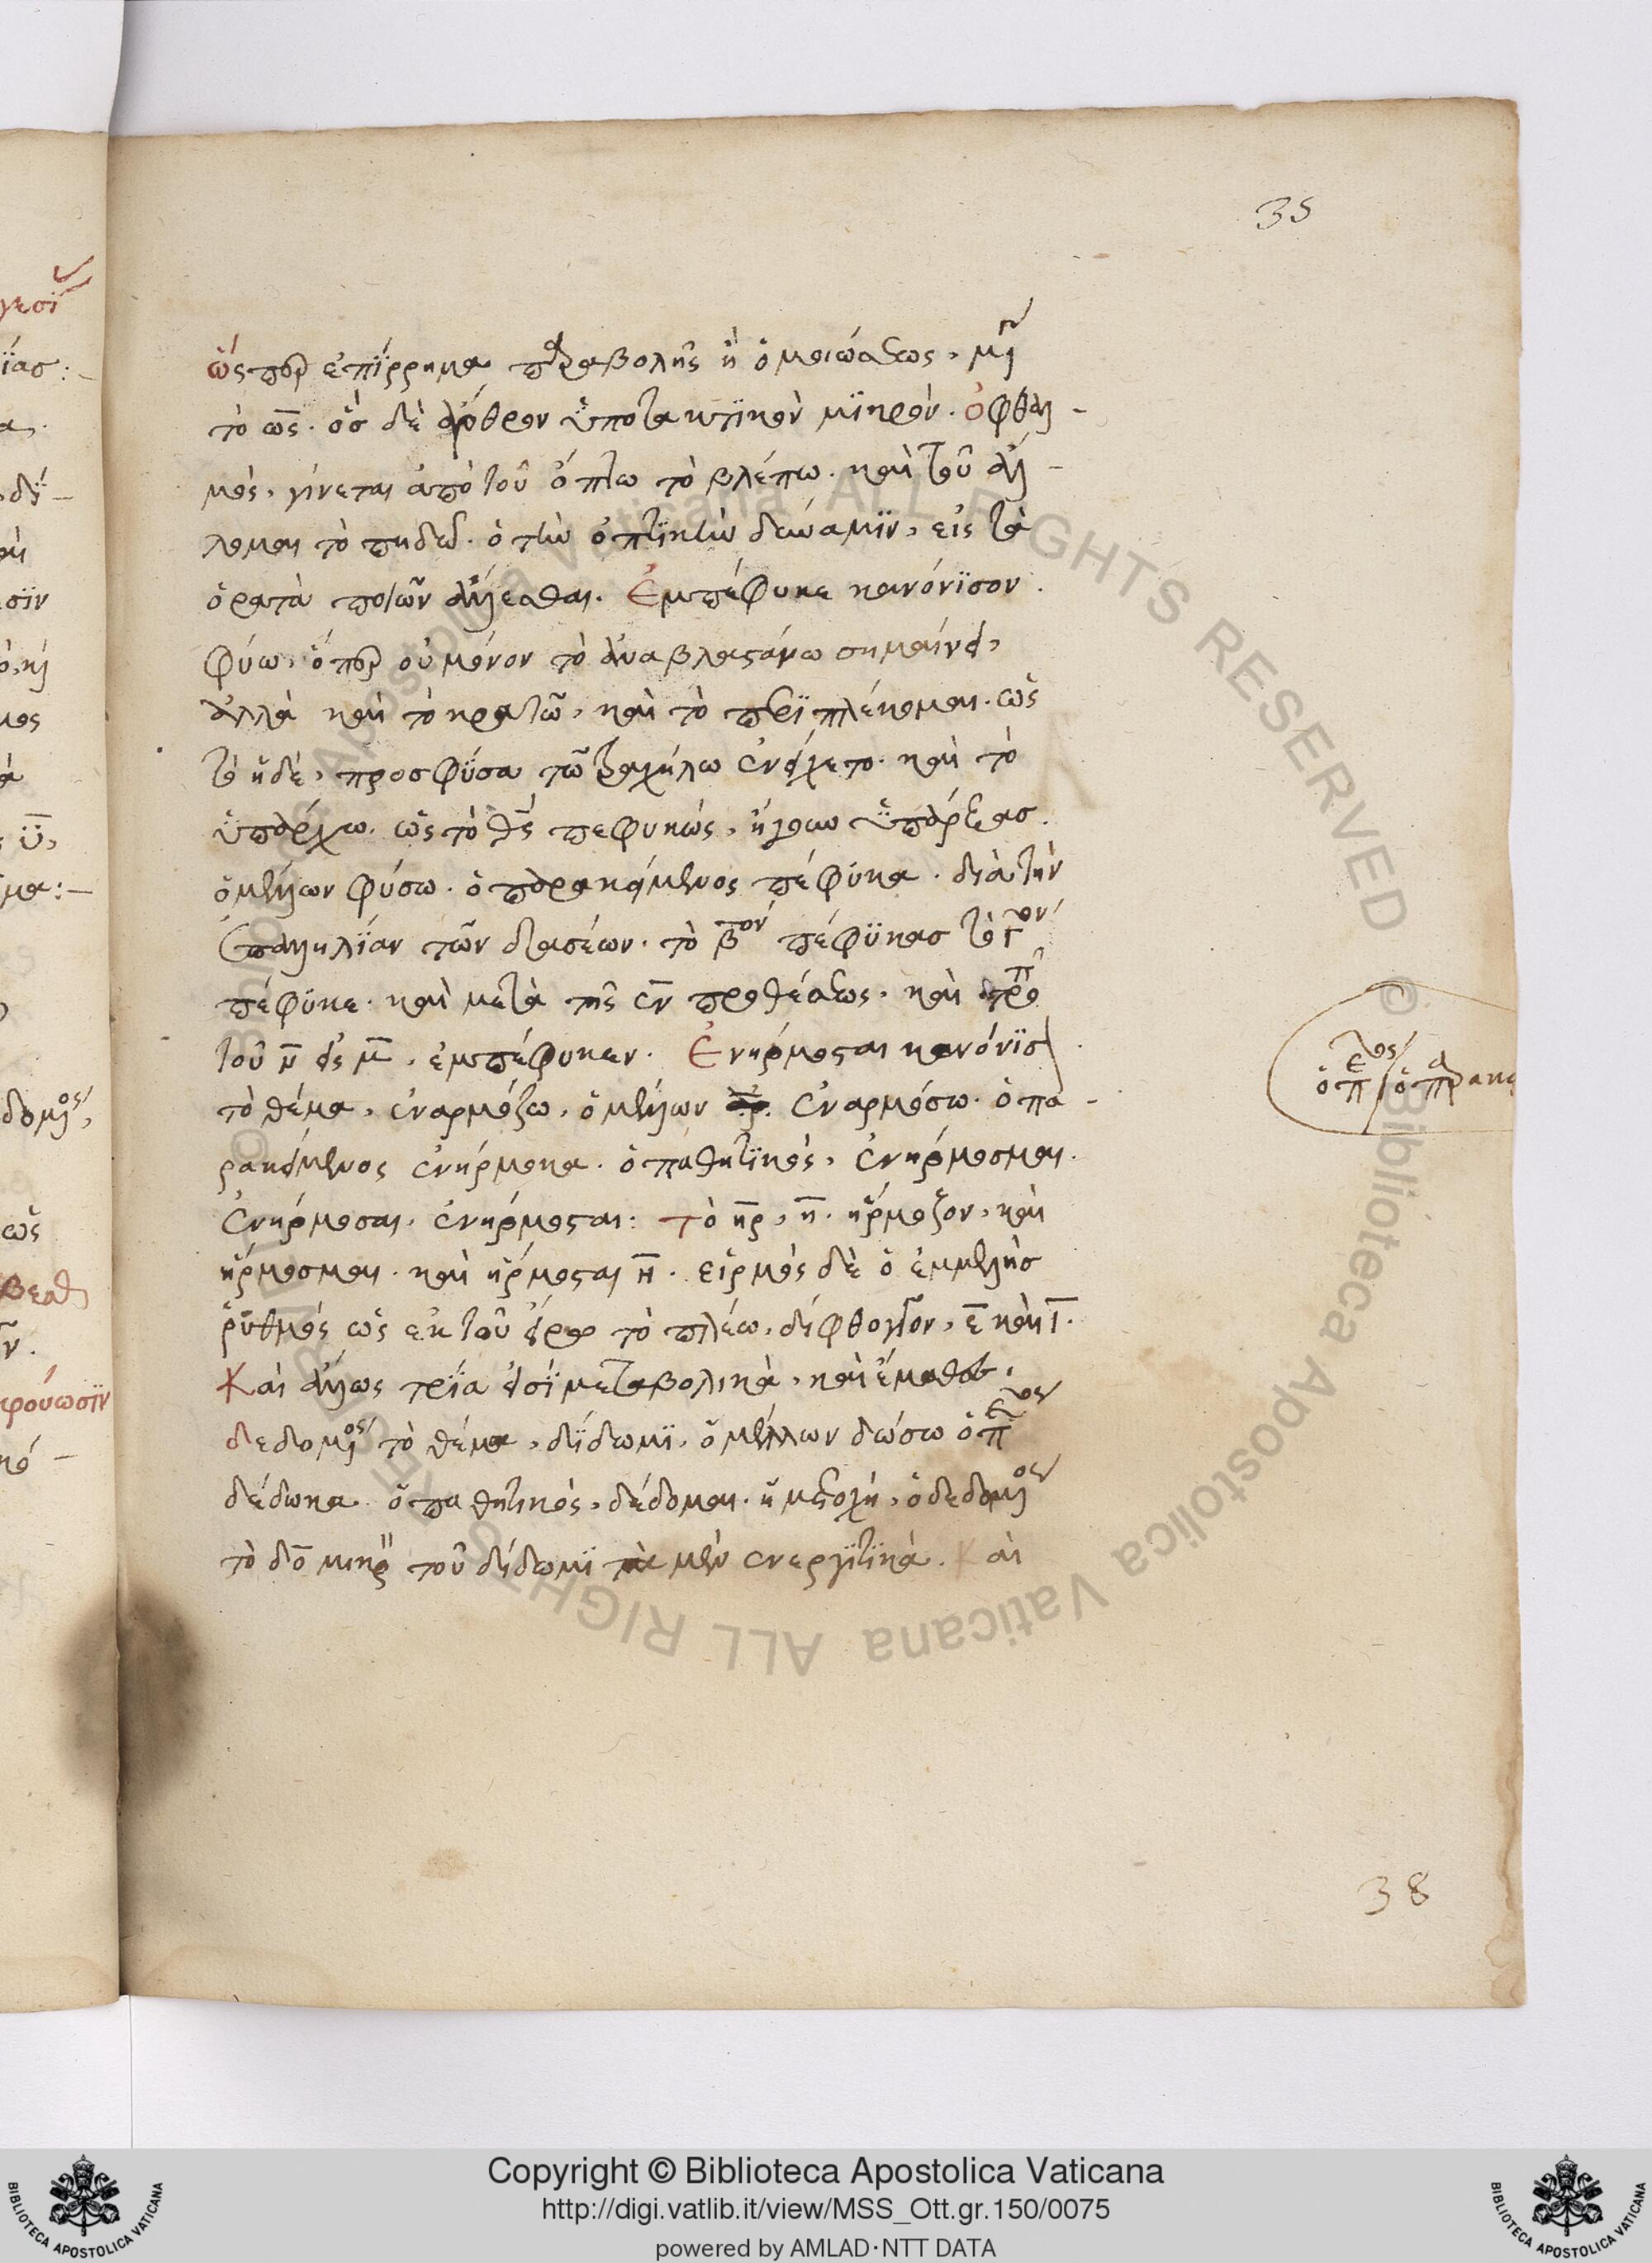 35
ὥσπερ ἐπίρρημα παραβολῆς ἢ ὁμοιώσεως, μέγα
τὸ ως. ὃσ δὲ ἄρθρον ὑποτακτϊκὸν μϊκρόν. ὀφθαλ-
μὸς, γίνεται ἀπὸ τοῦ ὄπτω τὸ βλέπω. καὶ τοῦ ἅλ-
λομαι τὸ πηδῶ. ὁ τὴν ὀπτϊκὴν δύναμϊν, εἰς τὰ
ὁρατὰ ποιῶν ἅλλεσθαι. Ἐμπέφυκε κανόνϊσον.
φύω, ὅπερ οὐ μόνον τὸ ἀναβλαστάνω σημαίνει,
ἀλλὰ καὶ τὸ κρατῶ, καὶ τὸ περϊπλέκομαι. ὡς
τὸ ἡδὲ, προσφῦσα τῶ τραχήλω ἐνείχετο. καὶ τὸ
ὑπάρχω. ὡς τὸ θς πεφυκώς, ἤγουν ὑπάρξας.
ὁ μέλλων φύσω. ὁ παρακείμενος πέφυκα. διὰ τὴν
ἐπαλληλίαν τῶν δασέων. τὸ βον πέφϋκασ τὸ γον
πέφϋκε. καὶ μετὰ τῆς εν προθέσεως. καὶ τροπ
τοῦ ν εἰς μ, ἐμπέφυκεν. Ἐνήρμοσται κανόνϊσ
τὸ θέμα, ἐναρμόζω, ὁ μέλλων ἐναρμόσω. ὁ πα-
ρακείμενος ἐνήρμοκα. ὁ παθητϊκὸς, ἐνήρμοσμαι.
ἐνήρμοσαι, ἐνήρμοσται: τὸ ηρ, η. ἥρμοζον, καὶ
ἥρμοσμαι. καὶ ἥρμοσται η. εἱρμὸς δὲ ὁ ἐμμελὴσ
ῥυθμός ὡς ἐκ τοῦ εἴρω τὸ πλέκω, δίφθογγον, ε καὶ ι.
Καὶ ἄλλως τρία εἰσϊ μεταβολικὰ, καὶ ἔμαθες,
δεδομένος τὸ θέμα, δίδωμϊ, ὁ μέλλων δώσω ὁ π
δέδωκα. ὁ παθητικὸς, δέδομαι. ἡ μετοχή, ὁ δεδομένος
τὸ δο μικρὸν τοῦ δίδωμϊ τὰ μὲν ἐνεργϊτϊκά. Καὶ
38
Copyright © Biblioteca Apostolica Vaticana
http://digi.vatlib.it/view/MSS_Ott.gr.150/0075
powered by AMLAD·NTT DATA